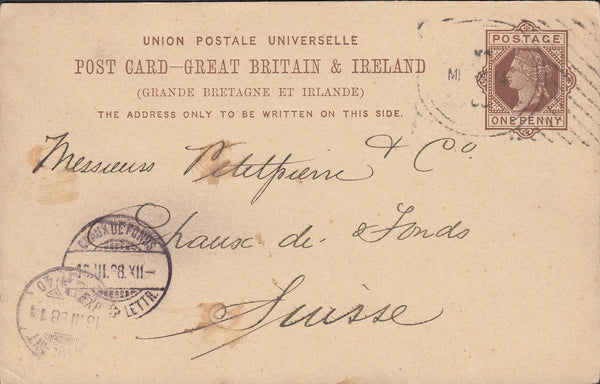 UNION POSTALE UNIVERSELLE
POST CARD—GREAT BRITAIN & IRELAND
(GRANDE BRETAGNE ET IRLANDE)
THE ADDRESS ONLY TO BE WRITTEN ON THIS SIDE.
POSTAGE
ONE PENNY
Messieurs Petitpierre & Co.
Chaux de Fonds
Suisse
CHAUX DE FONDS
EXP. LETTR.